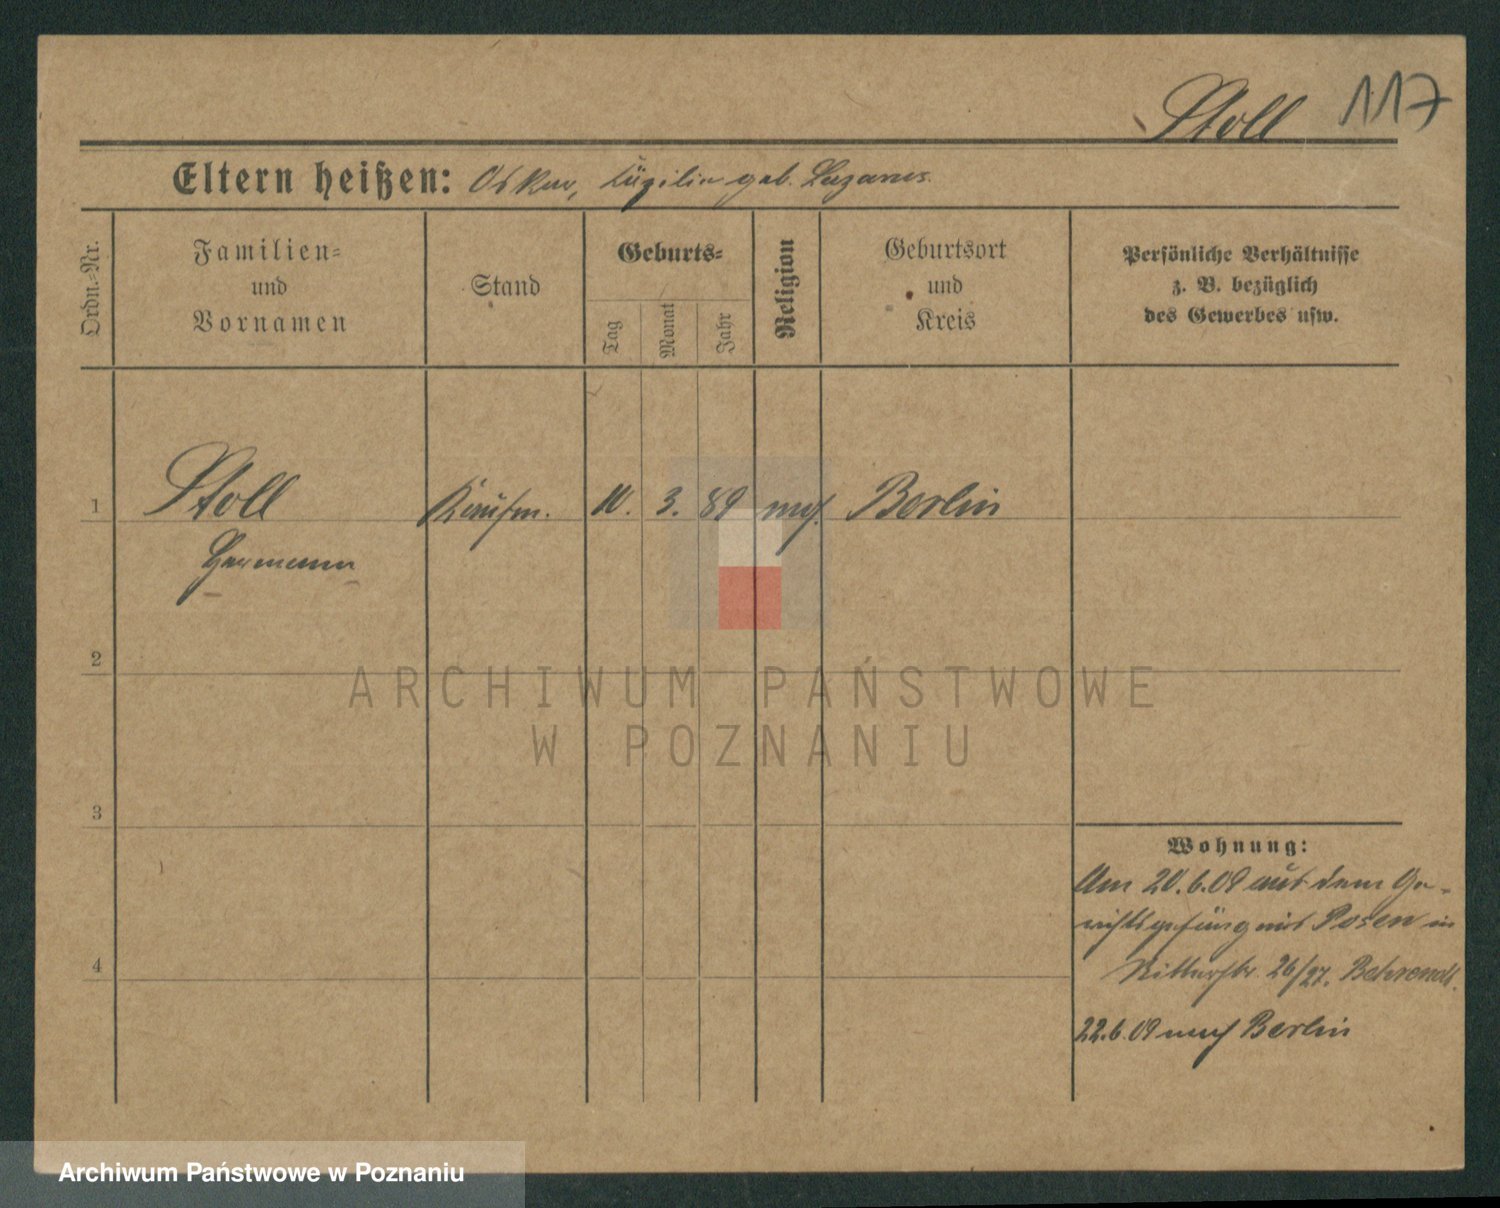 Stoll 117
Eltern heißen: Oskar, Cäzilie geb. Lazarus.
Ordn.-Nr.
Familien-
und
Vornamen
Stand
Geburts-
Tag
Monat
Jahr
Religion
Geburtsort
und
Kreis
Persönliche Verhältnisse
z. B. bezüglich
des Gewerbes usw.
1 Stoll Kaufm. 10. 3. 89 Berlin
Hermann
2
3
4
Wohnung:
Am 20.6.09 aus dem Ge-
richtsgefängnis Posen in
Ritterstr. 26/27. Behrendt.
22.6.09 nach Berlin
ARCHIWUM PAŃSTWOWE
W POZNANIU
Archiwum Państwowe w Poznaniu